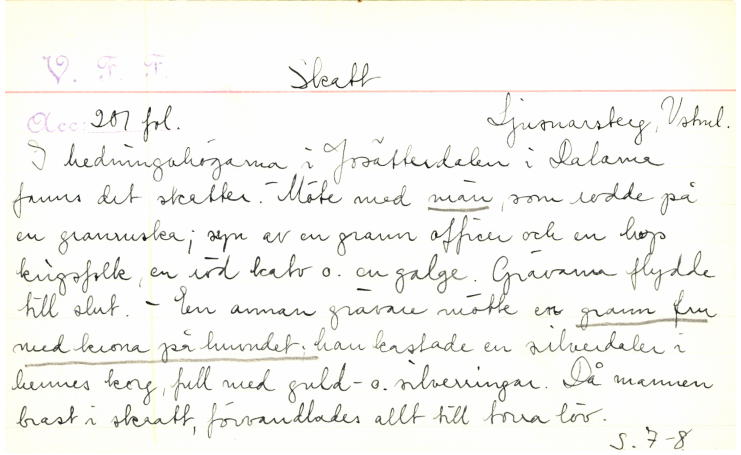 V. F. F.
Skatt
Acc. 207 fol.
Ljusnarsberg, Vstml.
I hedningahögarna i Josätterdalen i Dalarna
fanns det skatter. – Möte med män, som rodde på
en granruska; syn av en grann officer och en hop
krigsfolk, en röd kalv o. en galge. Grävarna flydde
till slut. – En annan grävare mötte en grann fru
med krona på huvudet; han kastade en silverdaler i
hennes korg, full med guld- o. silverringar. Då mannen
brast i skratt, förvandlades allt till torra löv.
S. 7-8